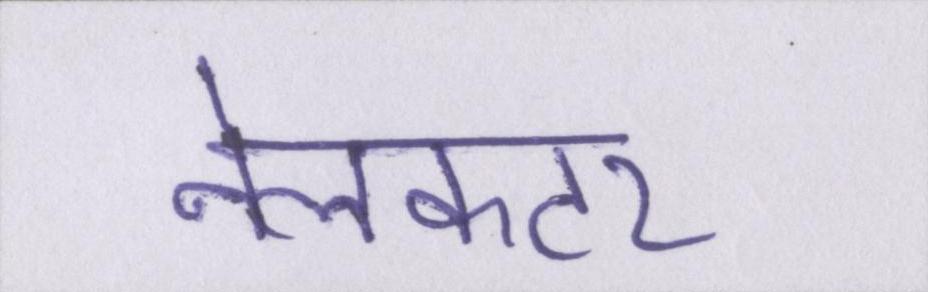 नेलकटर